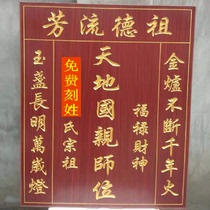 祖德流芳
金爐不斷千年火
福祿財神
天地國親師位
免费刻姓
氏宗祖
玉盞長明萬歲燈